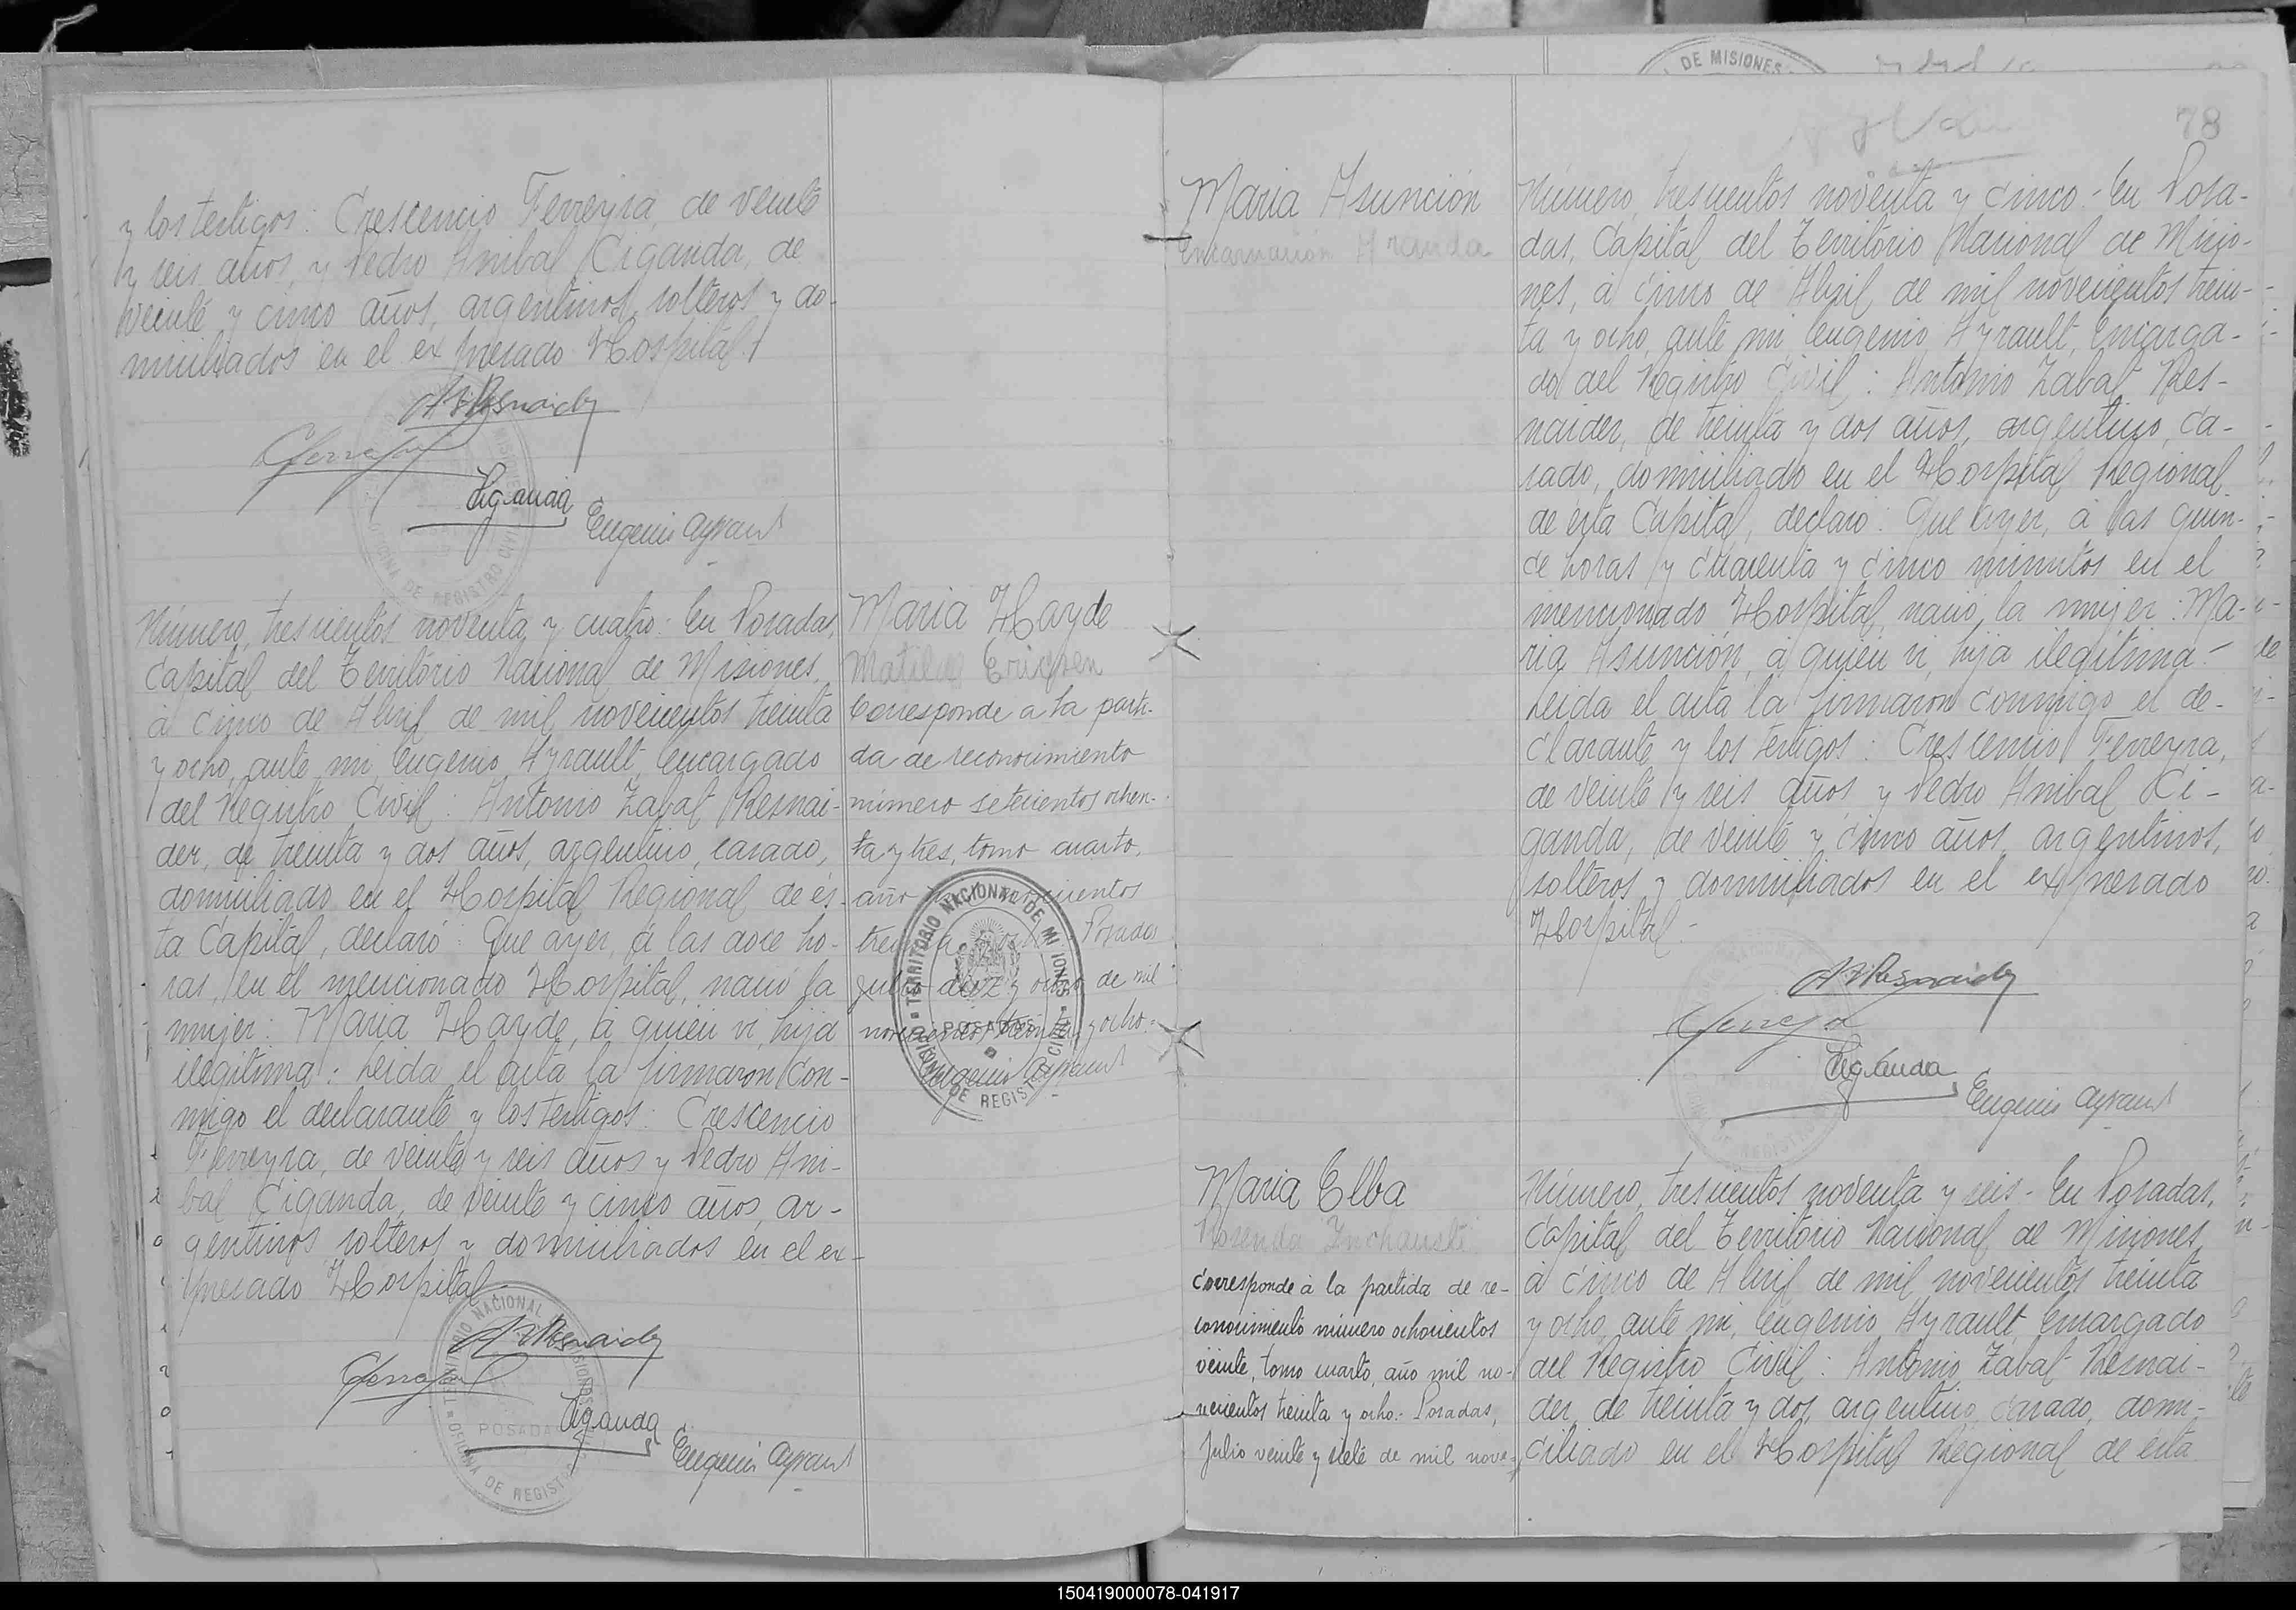 y los testigos: Crescencio Ferreyra, de veinte
y seis años, y Pedro Anibal Ciganda, de
veinte y cinco años, argentinos, solteros y do-
miciliados en el ex presado Hospital.
Ciganda
Eugenio Ayrault
Número, trescientos noventa y cuatro: En Posadas,
Capital del Territorio Nacional de Misiones,
á cinco de Abril de mil novecientos treinta
y ocho, ante mi, Eugenio Ayrault, Encargado
del Registro Civil: Antonio Zabat Resnai-
der, de treinta y dos años, argentino, casado,
domiciliado en el Hospital Regional de és-
ta Capital, declaró: Que ayer, á las doce ho-
ras, en el mencionado Hospital, nació la
mujer: Maria Hayde, á quien vi, hija
ilegitima: Leida el acta la firmaron con-
migo el declarante y los testigos: Crescencio
Ferreyra, de veinte y seis años y Pedro Ani-
bal Ciganda, de veinte y cinco años, ar-
gentinos solteros y domiciliados en el ex-
presado Hospital
Ciganda
Eugenio Ayrault
Maria Hayde
Matilde Ericksen
Corresponde a la parti-
da de reconocimiento
número setecientos ochen-
ta y tres, tomo cuarto,
año novecientos
treinta y ocho. Posadas
Julio diez y ocho de mil
novecientos treinta y ocho.-
Eugenio Ayrault
TERRITORIO NACIONAL DE MISIONES
OFICINA DE REGISTRO CIVIL
POSADAS
DE MISIONES
78
Maria Asunción
Encarnación Aranda
Número, trescientos noventa y cinco.- En Posa-
das, Capital del Territorio Nacional de Misio-
nes, á cinco de Abril de mil novecientos trein-
ta y ocho, ante mi, Eugenio Ayrault, Encarga-
do del Registro Civil: Antonio Zabat Res-
naider, de treinta y dos años, argentino, ca-
sado, domiciliado en el Hospital Regional
de esta Capital, declaró: Que ayer, á las quin-
ce horas y cuarenta y cinco minutos en el
mencionado Hospital, nació, la mujer: Ma-
ria Asunción, á quien vi, hija ilegitima.-
Leida el acta la firmaron conmigo el de-
clarante y los testigos: Crescencio Ferreyra,
de veinte y seis años y Pedro Anibal Ci-
ganda, de veinte y cinco años, argentinos,
solteros y domiciliados en el expresado
Hospital-
Ciganda
Eugenio Ayrault
Maria Elba
Rosenda Inchausti
Corresponde á la partida de re-
conocimiento número ochocientos
veinte, tomo cuarto, año mil no-
vecientos treinta y ocho.- Posadas,
Julio veinte y siete de mil nove-
Número, trescientos noventa y seis- En Posadas,
Capital del Territorio Nacional de Misiones
á cinco de Abril de mil novecientos treinta
y ocho, ante mi, Eugenio Ayrault, Encargado
del Registro Civil: Antonio Zabat Resnai-
der, de treinta y dos, argentino, casado, domi-
ciliado en el Hospital Regional de esta
150419000078-041917